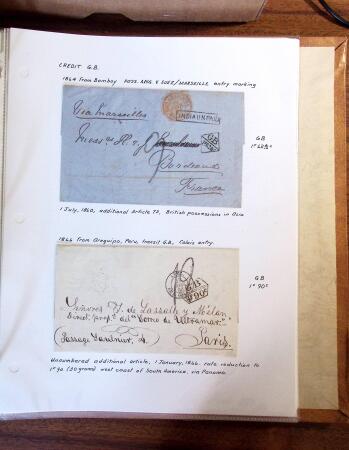 CREDIT G.B.
1864 from Bombay POSS. ANG. V. SUEZ/MARSEILLE entry marking
Via Marseilles
INDIA UNPAID
Bordeaux
France
GB
1 July, 1860, additional article 72, British possessions in Asia
1866 from Arequipa, Peru, transit G.B., Calais entry.
GB
1F90
GB
1F 90c
Señores V. de Lassalle y Mélan
del "Correo de Ultramar"
(Passage Saulnier, 4.
Paris.
Unnumbered additional article, 1 January, 1866. rate reduction to
1F90 (30 grams) west coast of South America, via Panama.